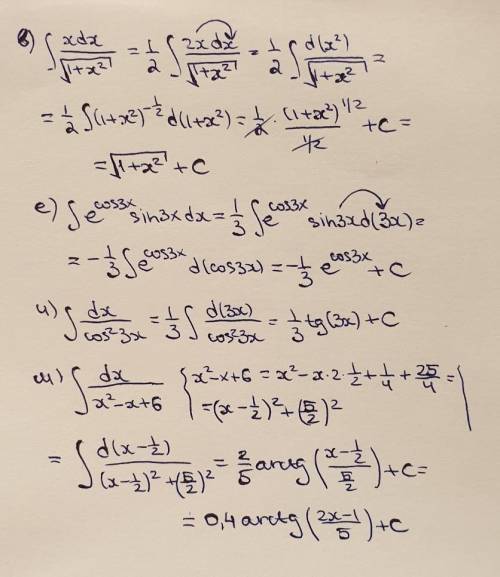 в) ∫ xdx/√(1+x²) = 1/2 ∫ 2xdx/√(1+x²) = 1/2 ∫ d(x²)/√(1+x²) =
= 1/2 ∫(1+x²)^(-1/2) d(1+x²) = 1/2 · (1+x²)^(1/2)/(1/2) + C =
= √(1+x²) + C
е) ∫e^(cos3x) sin3x dx = 1/3 ∫e^(cos3x) sin3xd(3x) =
= -1/3 ∫e^(cos3x) d(cos3x) = -1/3 e^(cos3x) + C
и) ∫ dx/cos²3x = 1/3 ∫ d(3x)/cos²3x = 1/3 tg(3x) + C
м) ∫ dx/(x²-x+6) { x²-x+6 = x²-x·2·1/2+1/4+25/4 =
= (x-1/2)²+(5/2)² }
= ∫ d(x-1/2)/((x-1/2)²+(5/2)²) = 2/5 arctg((x-1/2)/(5/2)) + C =
= 0,4 arctg((2x-1)/5) + C